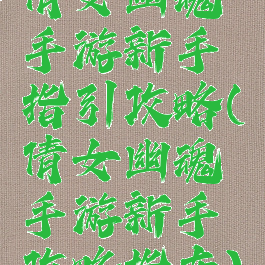 倩女幽魂
手游新手
指引攻略(
倩女幽魂
手游新手
攻略指南)